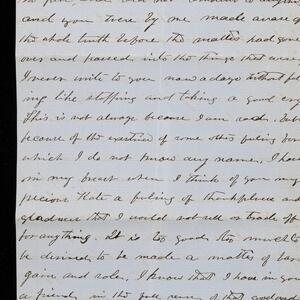 and you were by me made aware of
the whole truth before the matter had gone
over and passed into the things that were
I never write to you now a days without feel
ing like stopping and taking a good cry
This is not always because I am sad. But
because of the existence of some other feeling for
which I do not know any name, I have
in my breast when I think of you my
precious Kate a feeling of thankfulness and
gladness that I would not sell or trade off
for anything. It is too good, too much to
be desired, to be made a matter of bar
gain and sale. I know that I have in you
a friend in the full sense of that